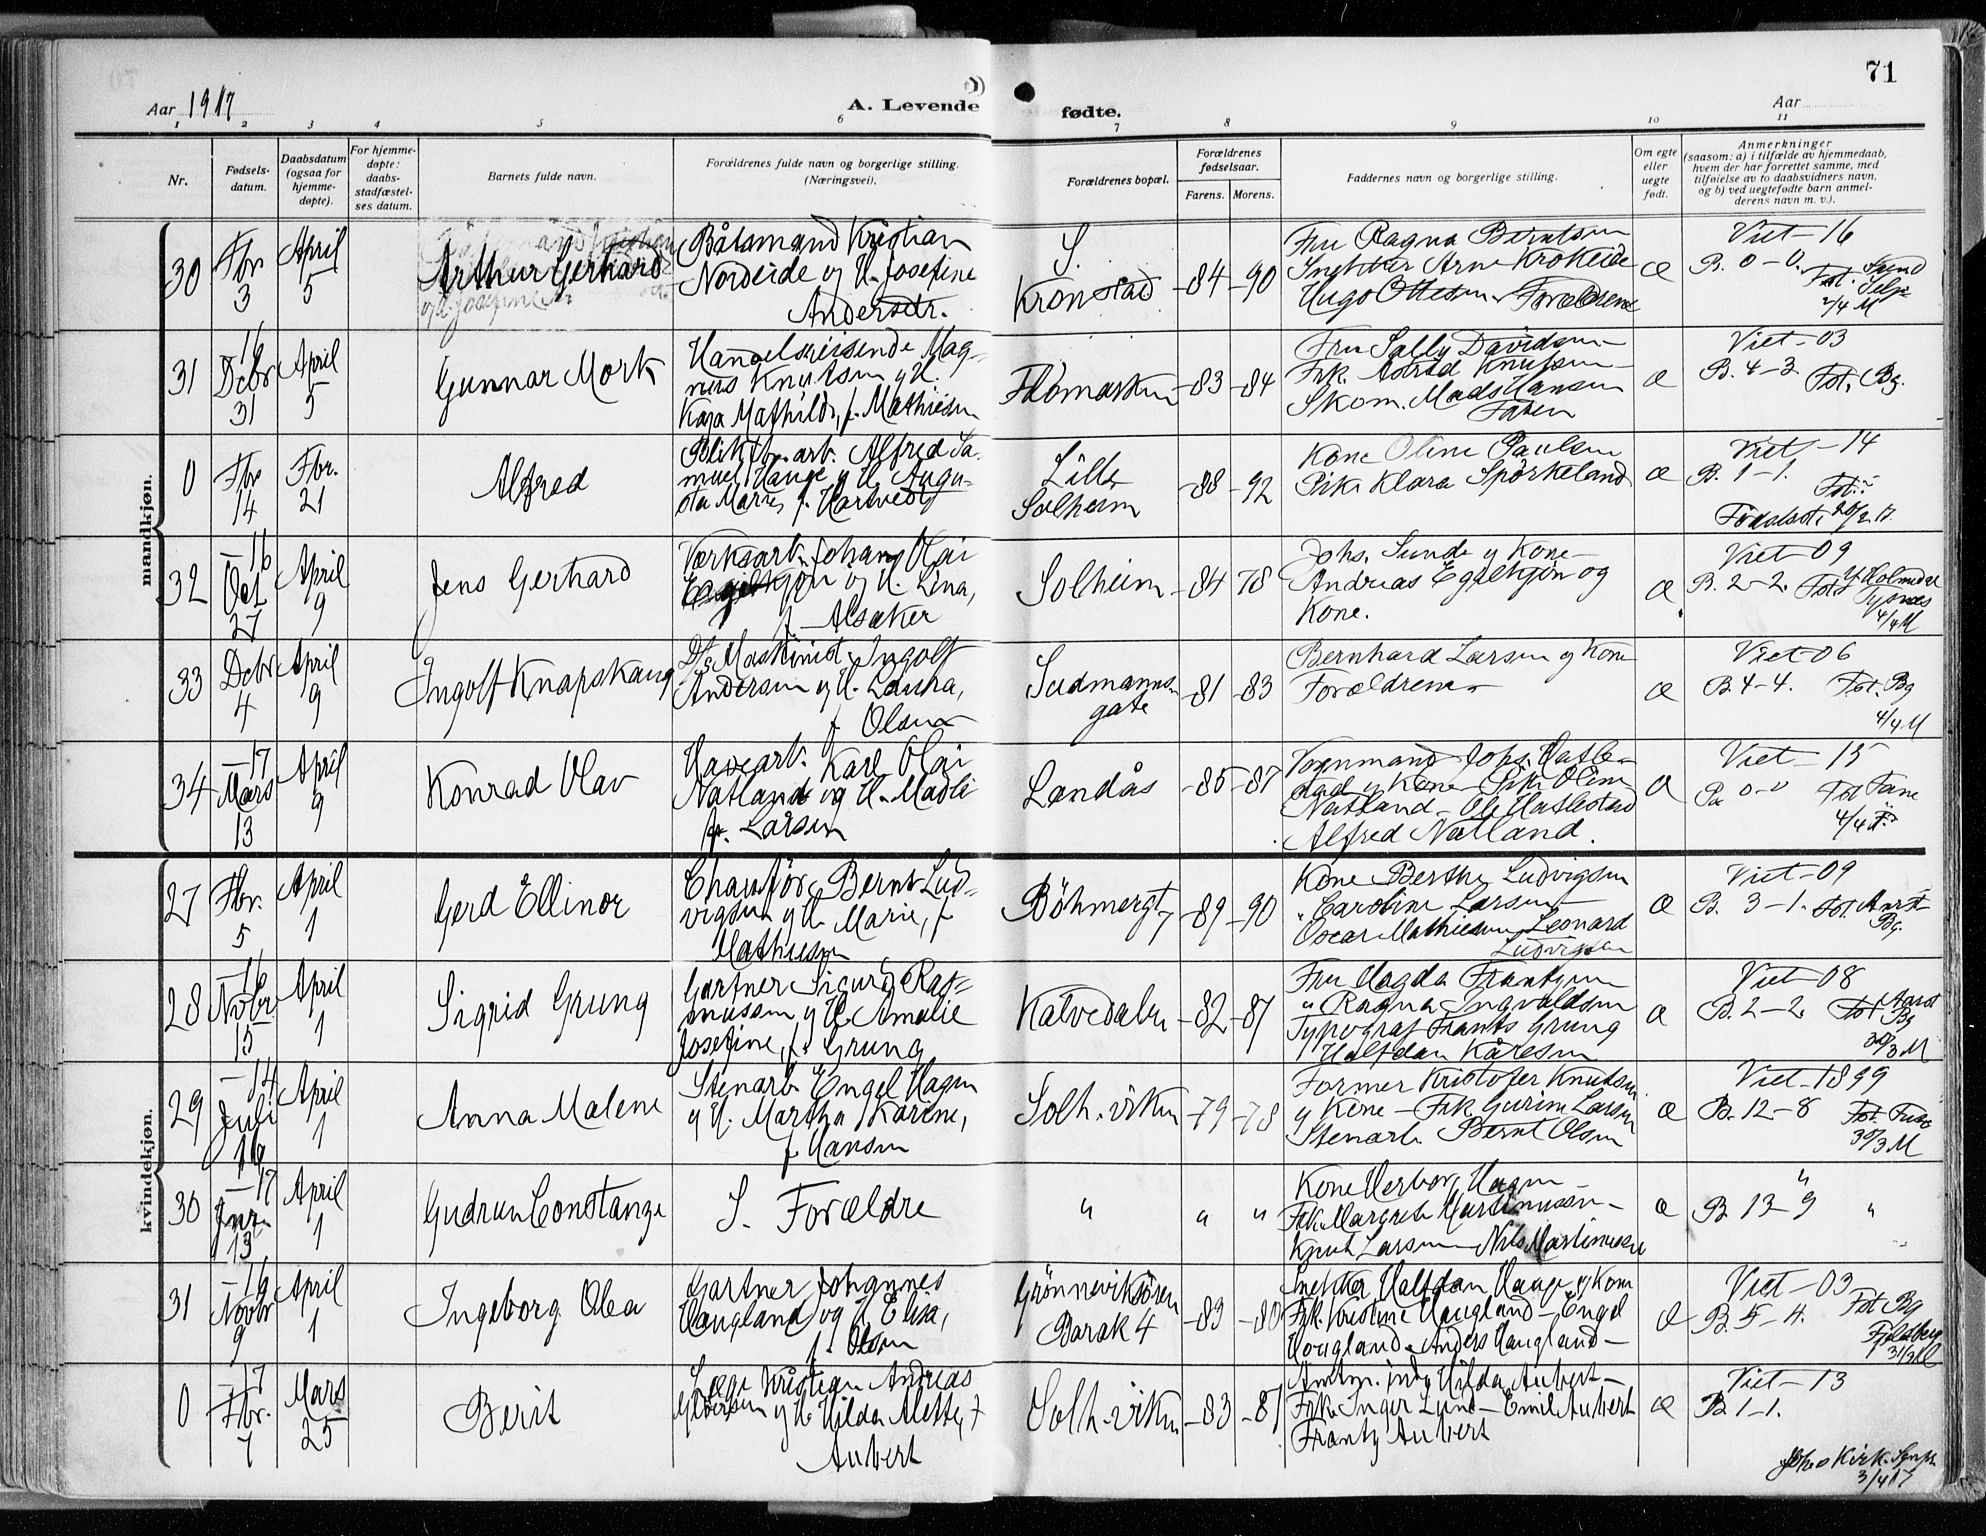 71
Aar 1917
A. Levende
fødte.
Aar
1 2 3 4 5 6 7 8 9 10 11
Nr.
Fødsels-
datum.
Daabsdatum
(ogsaa for
hjemme-
døpte).
For hjemme-
døpte:
daabs-
stadfæstel-
ses datum.
Barnets fulde navn.
Forældrenes fulde navn og borgerlige stilling.
(Næringsvei).
Forældrenes bopæl.
Forældrenes
fødselsaar.
Farens. Morens.
Faddernes navn og borgerlige stilling.
Om egte
eller
uegte
født.
Anmerkninger
(saasom: a) i tilfælde av hjemmedaab,
hvem der har forrettet samme, med
tilføielse av to daabsvidners navn,
og b) ved uegtefødte barn anmel-
derens navn m. v.).
mandkjøn.
30
Fbr
3
April
5
Arthur Gerhard
Båtsmand Kristian
Nordeide og H. Josefine
Andersdtr.
S.
Kronstad
-84 -90
Fru Ragna Berntsen
Arne Krokeide
Hugo Ottesen Forældrene
æ
Viet -16
B. 0-0.
2/4 M
31
16
Debr
31
April
5
Gunnar Mork
Handelsreisende Mag-
nus Knutsen og H.
Kaja Mathilde, f. Mathiesen
-83 -84
Fru Sally Davidsen
Frk. Astrid Knutsen
Skom. Mads Hansen
Faren
æ
Viet -03
B. 4-3 Fot. Bg.
0
Fbr
14
Fbr.
21
Alfred
arb. Alfred Sa-
muel Hauge og H. Augu-
sta Marie, f. Hartvedt
Lille
Solheim
-88 -92
Kone Oline Paulsen
Pike Klara Spørkeland
æ
Viet -14
B. 1-1.
Fødselsat. 20/2 17.
32
-16
Oct
27
April
9
Jens Gerhard
Verksarb. Johan Olai
og H. Lina,
f. Alsaker
Solheim
-84 78
Johs. Sunde og Kone -
Andreas Egelkjøn og
Kone.
æ
Viet -09
B. 2-2.
Tysnes
4/4 M
33
Debr
4
April
9
Ingolf Knapskaug
Maskinist Ingolf
Andersen og H. Laura,
f. Olsen
Sudmanns-
gate
-81 -83
Bernhard Larsen og Kone
Forældrene
æ
Viet 06
B. 4-4. Fot. Bg
4/4 M
34
-17
Mars
13
April
9
Konrad Olav
Havearb. Karl Olai
Natland og H. Madli
f. Larsen
Landås
-85 -87
Vognmand Johs. Hatle-
stad og Kone - Pike Oline
Natland - Ole Hatlestad
Alfred Natland.
æ
Viet -15
0-0 Fot Fane
4/4 M
kvindekjøn.
27
Fbr.
5
April
1
Gerd Ellinor
Chauffør Bernt Lud-
vigsen og H. Marie, f.
Mathiesen
Böhmergt 7
-89 -90
Kone Berthe Ludvigsen
" Caroline Larsen
Oscar Mathiesen Leonard
Ludvigsen
æ
Viet -09
B. 3-1. Fot. Aarst
Bg.
28
-16
Novbr
15
April
1
Sigrid Grung
Gartner Sigurd Ras-
mussen og H. Amalie
Josefine, f. Grung
Kalvedalen
-82 -87
Fru Magda Frantzen
" Ragna Ingvaldsen
Typograf Frants Grung
Halfdan Kåresen
æ
Viet -08
B. 2-2 Fot Aarst
Bg
30/3 M
29
-14
Juli
16
April
1
Anna Malene
Stenarb Engel Hagen
og H. Martha Karene,
f. Hansen
Solh. viken
-79 -78
Former Kristofer Knutsen
og Kone - Frk Gurine Larsen
Stenarb Bernt Olsen
æ
Viet -1899
B. 12-8
30/3 M
30
-17
Jnr.
13
April
1
Gudrun Constange
S. Forældre
" " "
Kone Herborg Hagen -
Frk. Margrete Martinussen -
Knut Larsen Nils Martinussen
æ
"
B 13-9 "
31
-16
Novbr
9
April
1
Ingeborg Olea
Gartner Johannes
Haugland og H Elisa,
f. Olsen
Grønneviksøren
Barak 4
-89 -80
Halfdan Hauge og Kone
Frk. Kristine Haugland - Engel
Haugland - Anders Haugland -
æ
Viet -03
B. 5-4. Fot Bg
Fjeldberg
31/3 M
0
-17
Fbr.
7
Mars
25
Berit
Læge Kristian Andreas
og H. Hilda Alette, f
Aubert
Solh. viken
-83 -87
Hilda Aubert -
Frk. Inger Lund - Emil Aubert
Frantz Aubert
æ
Viet -13
B 1-1.
Johs Kirk.
3/4 17